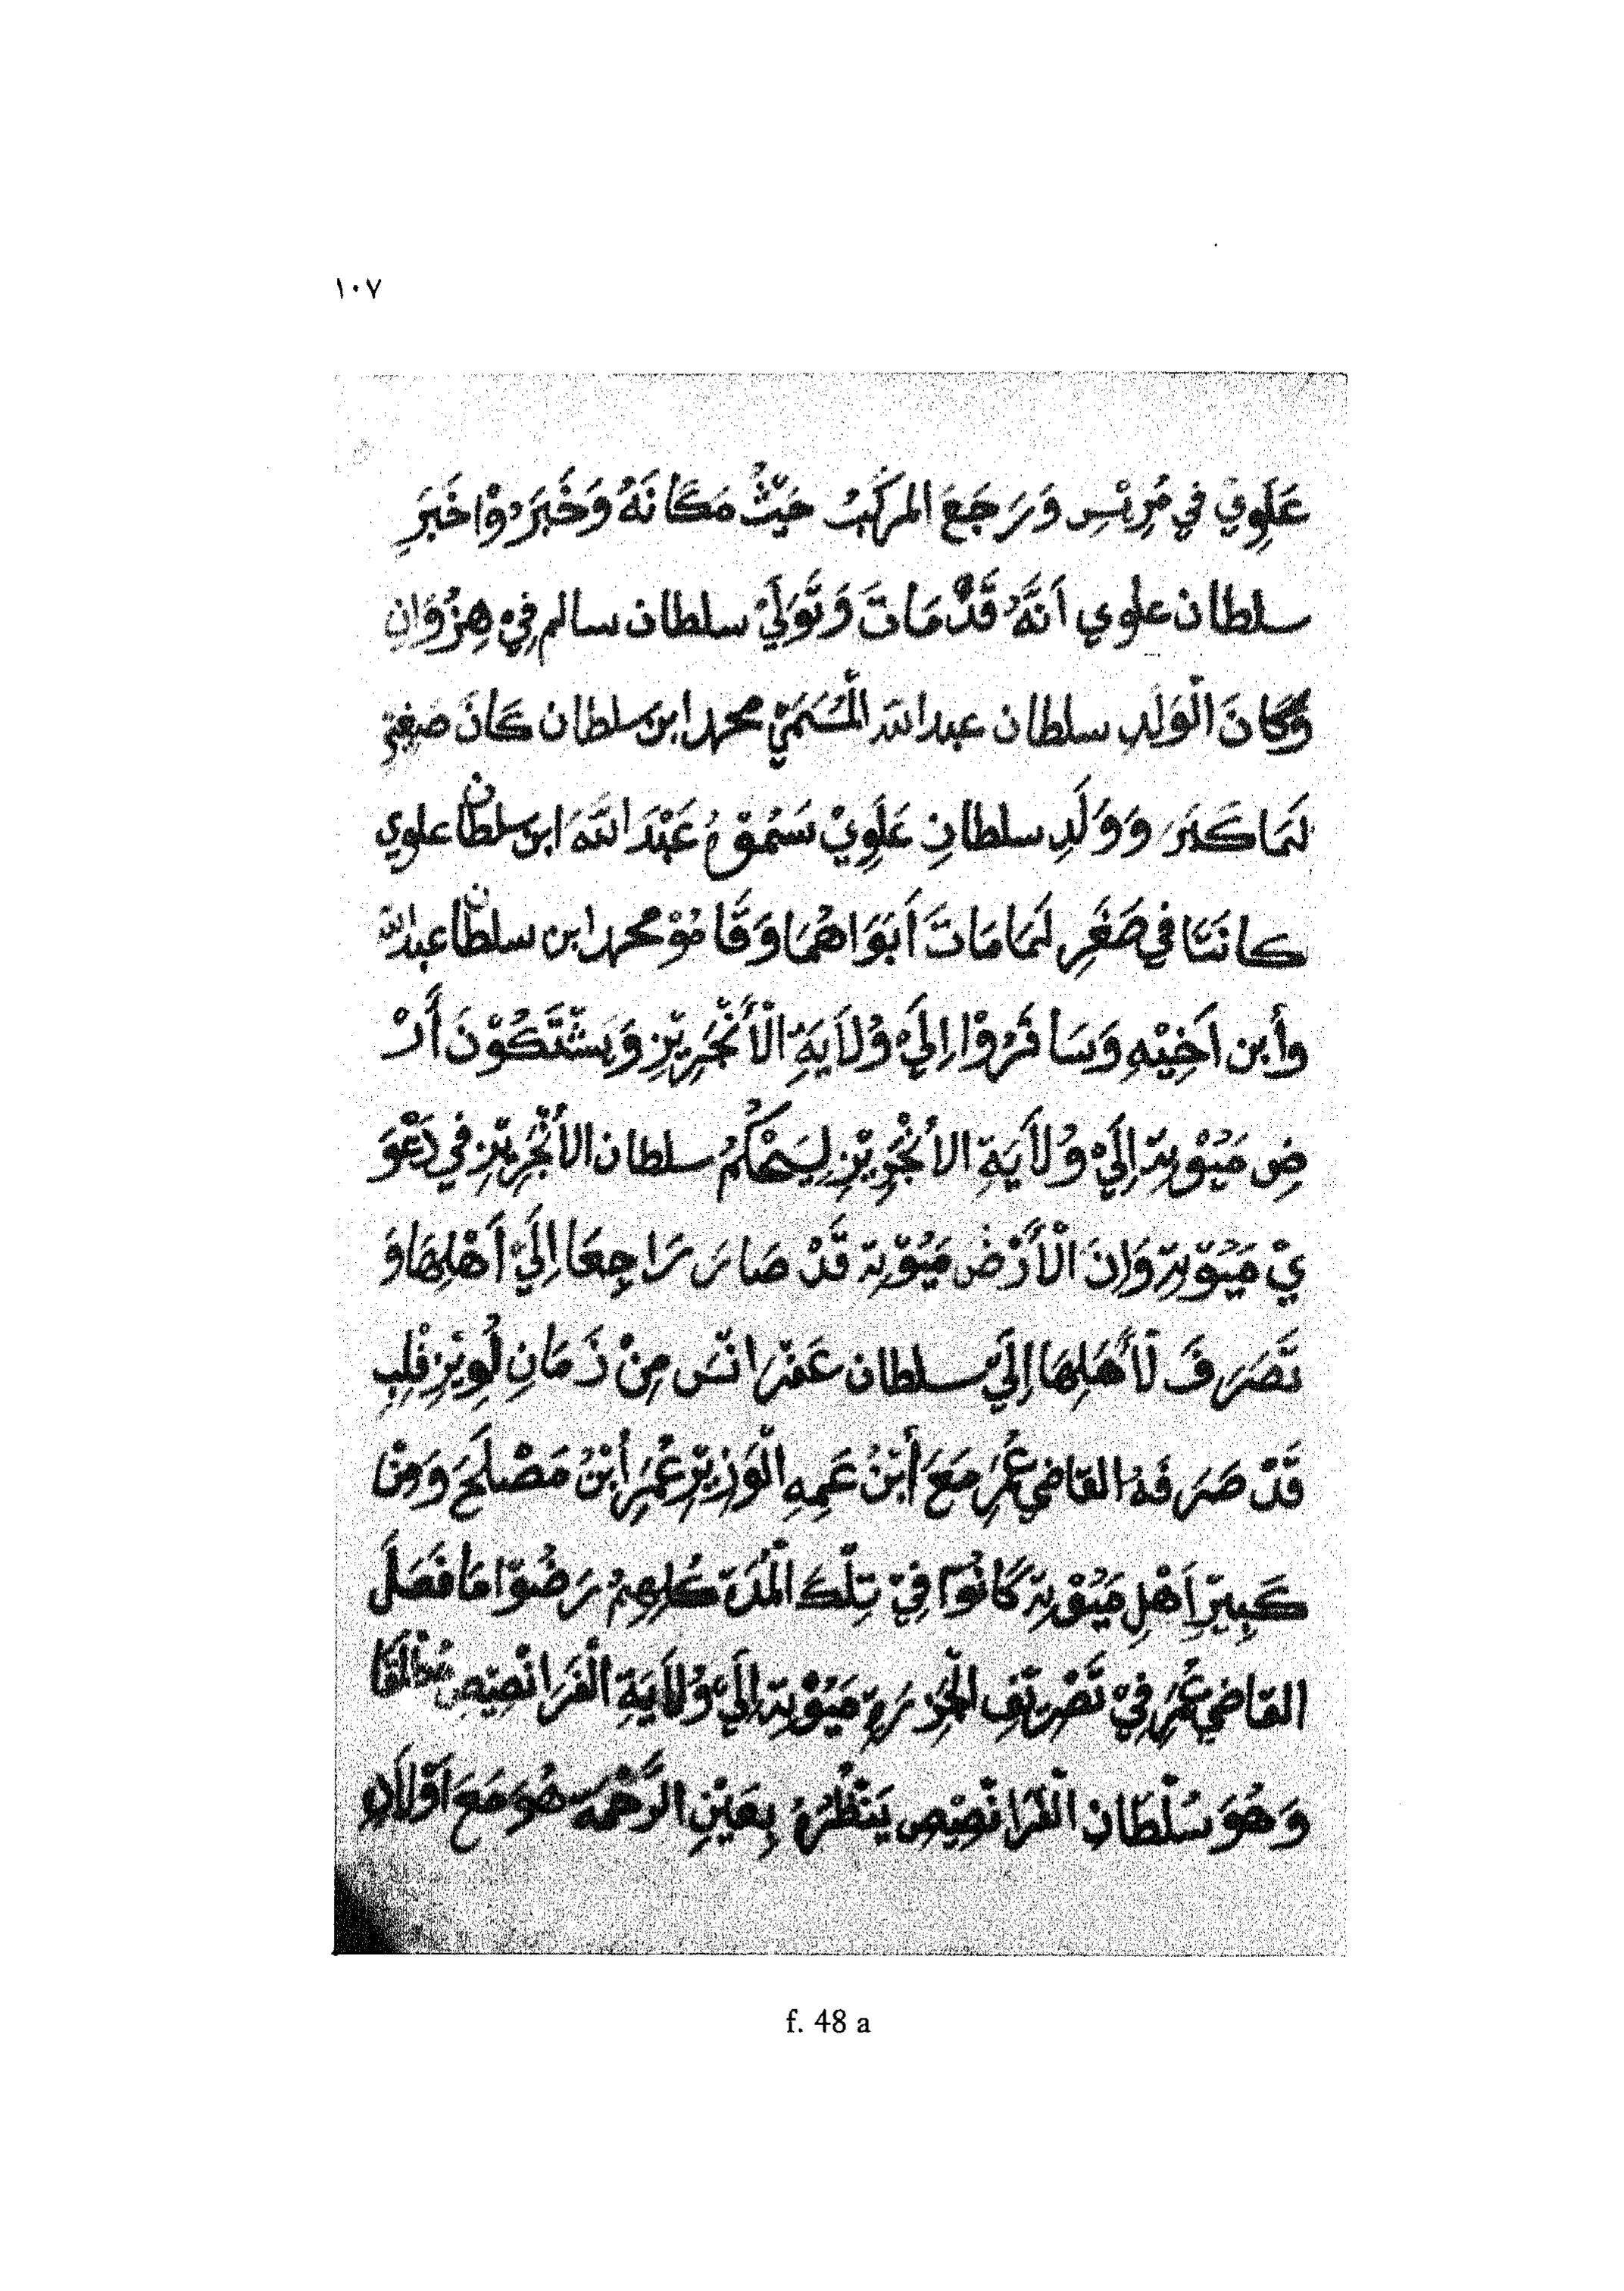 ١٠٧
عَلَوِي فِي مُرِيْسِ وَرَجَعَ المَرْكَبُ حَيْثُ مَكَانَهُ وَخَبَرُوْا خَبَرِ
سلطان علوي اَنَّهُ قَدْ مَاتَ وَتَوَلَيْ سلطان سالم فِيْ هِنْزُوَانِ
وَكَانَ الْوَلَدِ سلطان عبد الله الْمُسَمَيْ محمد ابن سلطان كَانَ صَغِيْرِ
لَمَا كَبَرَ وَوَلَدِ سلطانِ عَلَوِيْ سَمُوْهُ عَبْدَ اللَّهَ ابن سلطان علوي
كانَتَا فِي صَغَرِ لَمَا مَاتَ أَبَوَاهُمَا وَقَامُوْ محمد ابن سلطان عبد الله
وأبن اَخِيْهِ وَسَافَرُوْا اِلَيْ وُلاَيَةِ الْأَنْجَرِيْزِ وَيَشْتَكُوْنَ أَرْ
ضِ مَيُوْتِة اِلَيْ وُلاَيَةِ الاَنْجَرِيْزِ لِيَحْكُمُ سلطان الاَنْجَرِيْزِ فِي دَعْوَ
يْ مَيُوْتِة وَاِنَ الْأَرْضْ مَيُوْتِة قَدْ صَارَ رَاجِعَا اِلَيْ اَهْلِهَا وَ
تَصَرَفَ لَأَهْلِهَا اِلَيْ سلطان عَفْرَانْسَ مِنْ زَمَانِ لُوِيْزِ فْلِبِ
قَدْ صَرَفَهُ القاضي عُمَرِ مَعَ أَبْنُ عَمِهِ الْوَزِيْرِ عُمَرِ أَبْنُ مَصْلَحَ وَمِنْ
كَبِيْرِ اَهْلِ مَيُوْتِة كَانُوْا فِيْ تِلْكَ الْمُدَة كُلِهِمْ رَضُوْا مَا فَصَلَ
القاضي عُمَرِ فِيْ تَصْرِيْفِ الْجَزْيرَةِ مَيُوْتِة اِلَيْ وُلاَيَةِ الْفَرَانْصِيْصِ مُطْلَقًا
وَهُوَ سُلْطَانِ الْفَرَانْصِيْصِ يَنْظُرُهُ بِعَيْنِ الرَّحْمَه هُوَ مَعَ اَوْلاَدِهِ
f. 48 a